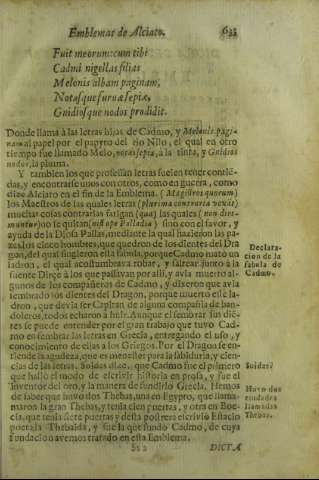 Emblemas de Alciato. 633
Fuit meorum: cum tibi
Cadmi nigellas filias
Melonis albam paginam,
Notasque furuæ sepiæ,
Gnidiosque nodos prodidit.
Donde llama à las letras hijas de Cadmo, y Melonis pagi-
nam al papel por el papyro del rio Nilo, el qual en otro
tiempo fue llamado Melo, notas sepiæ, à la tinta, y Gnidios
nodos, la pluma.
Y tambien los que professan letras suelen tener contie-
das, y encontrarse unos con otros, como en guerra, como
dize Alciato en el fin de la Emblema. (Magistros quorum)
los Maestros de las quales (letras) (plurima contraria vexat)
muchas cosas contrarias fatigan (quæ) las quales (non diri-
muntur) no se quitan (nisi ope Palladis) sino con el favor, y
ayuda de la Diosa Pallas, mediante la qual hazieron las pa-
zes los cinco hombres, que quedron de los dientes del Dra
gon, del qual fingieron esta fabula, porque Cadmo mato un
ladron, el qual acostumbrava robar, y saltear junto à la
fuente Dirçe à los que passavan por alli, y avia muerto al-
gunos de los compañeros de Cadmo, y dixeron que avia
sembrado los dientes del Dragon, porque muerto este la-
dron, que devia ser Capitan de alguna compañia de ban-
doleros, todos echaron à huir. Aunque el sembrar sus die-
tes se puede entender por el gran trabajo que tuvo Cad-
mo en sembrar las letras en Grecia, entregando el uso, y
conocimiento de ellas à los Griegos. Por el Dragon se en-
tiende la agudeza, que es menester para la sabiduria, y cien-
cias de las letras. Soidas dize, que Cadmo fue el primero
que hallò el modo de escrivir historia en prosa, y fue el
Inventor del oro, y la manera de fundirlo Grecia. Hemos
de saber que huvo dos Thebas, una en Egypto, que llama-
maron la gran Thebas, y tenia cien puertas, y otra en Boe-
cia, que tenia siete puertas y desta postrera escrivio Estacio
poeta la Thebaida, y fue la que fundo Cadmo, de cuya
fundacion avemos tratado en esta Emblema.
DICTA
Declara-
cion de la
fabula de
Cadmo.
Soidas?
Huvo dos
ciudades
llamadas
Thebas.